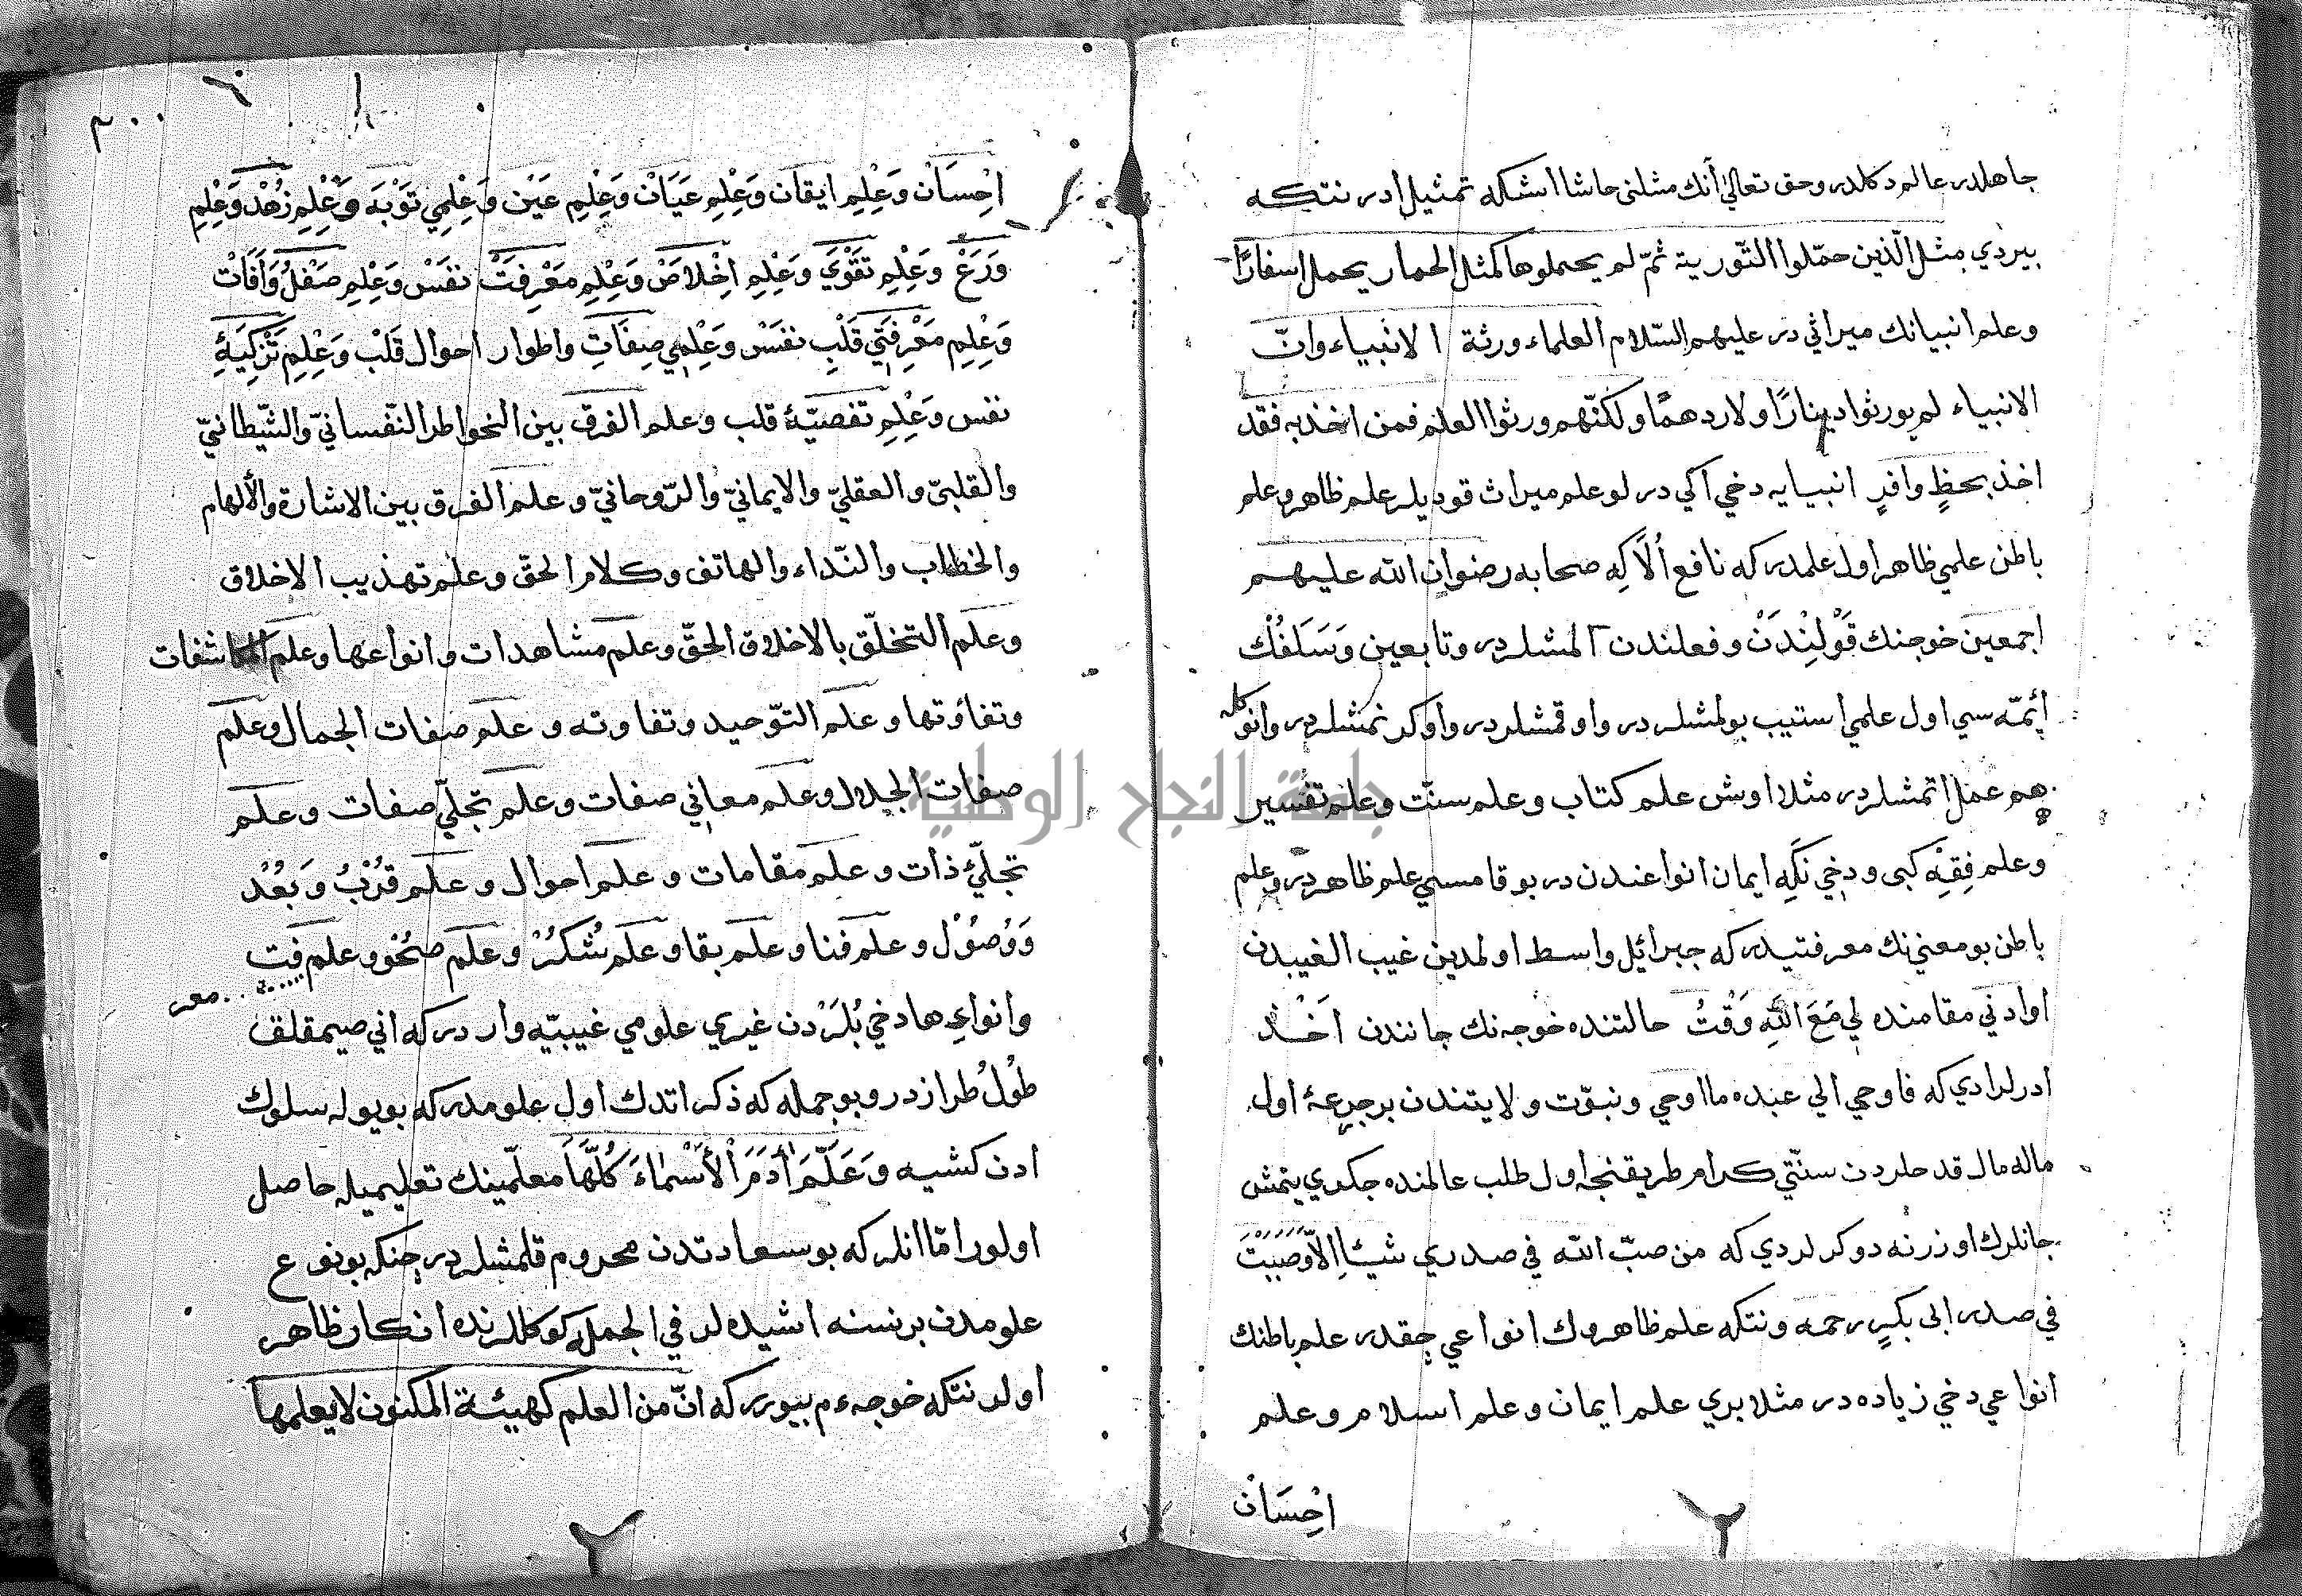 جاهلدر عالم دكلدر وحق تعالي أنك مثلنى حاشا اشكه تمثيل ادر نتكه
بيردي مثل الّذين حمّلوا التّورية ثمّ لم يحملوها كمثل الحمار يحمل اسفارًا
وعلم انبيانك ميراثي در عليهم السّلام العلماء ورثة الانبياء وانّ
الانبياء لم يورثوا دينارًا ولا درهمًا ولكنّهم ورثوا العلم فمن اخذ به فقد
اخذ بحظٍّ وافرٍ انبيايه دخي اكي درلو علم ميراث قوديلر علم ظاهر وعلم
باطن علمي ظاهر اول علمدر كه نافع اُلاَكِه صحابه رضوان الله عليهم
اجمعين خوجنك قَوْلِنْدَنْ وفعلندن المشلردر وتابعين وَسَلَفُكْ
أئمّه سي اول علمي استيب بولمشلردر واوقمشلردر واوكرنمشلردر وانوكله
هم عمل اتمشلردر مثلا اوش علم كتاب وعلم سنّت وعلم تفسير
وعلم فِقْه كبى ودخي نَكِه ايمان انواعندن در بوقامسي علم ظاهردر وعلم
باطن بو معني نك معرفتيدر كه جبرائيل واسط اولمدين غيب الغيبدن
اوادني مقامنده لِي مَعَ اللهِ وَقْتُ حالتنده خوجه نك جانندن اَخْذ
ادرلردي كه فاوحي الي عبده ما اوحي ونبوّت ولايتندن بر جرعهٔ اول
ماله مال قدحلردن سنّتي كرام طريقنجه اول طلب عالمنده جكري ينمش
جانلرك اوزرنه دوكرلردي كه من صبّ الله في صدري شيئا اِلاّ وَصَبَبْتَ
في صدر ابى بكرٍ رحمه ونتكه علم ظاهروك انواعي چقدر علم باطنك
انواعي دخي زياده در مثلا بري علم ايمان وعلم اسلام وعلم
احْسَانْ
٢٠٠
احْسَانْ وَعْلِمِ ايقان وَعْلِمِ عَيَانْ وَعْلِمِ عَيْن وَعْلِمِي تَوْبَه وَعْلِمِ زُهْد وَعْلِمِ
وَرَعْ وَعْلِمِ تقوَي وَعْلِمِ اِخْلاصْ وَعْلِمِ مَعْرِفَتْ نفَسْ وَعْلِمِ صَفْلُ وَآفَاتْ
وَعْلِمِ مَعْرِفَتِي قَلْبِ نفَسْ وَعْلِمِي صِفَاتِ واطوار احوال قَلْب وَعْلِمِ تَزكِيَهِٔ
نفس وَعْلِمِ تصفيّهٔ قلب وعلم الفرق بين الخواطر النّفسانيّ والشّيطانيّ
والقلبيّ والعقليّ والايمانيّ والرّوحانيّ وعلم الفرق بين الاشارة والألهام
والخطاب والنّداء والهاتف وكلام الحقّ وعلم تهذيب الاخلاق
وعلم التخلّق بالاخلاق الحقّ وعلم مشاهدات وانواعها وعلم المكاشفات
وتفاوتها وعلم التوّحيد وتفاوته وعلم صفات الجمال وعلم
صفات الجلال وعلم معاني صفات وعلم تجلّي صفات وعلم
تجلّئ ذات وعلم مقامات وعلم احوال وعلم قُرْبُ وَبُعْد
وَوُصُوْل وعلم فنا وعلم بقا وعلم سُكرُ وعلم صُحُو وعلم معرفت
وانواعِها دخي بُلَرْدن غيري علومي غيبيّه وار در كه اني صيمقلق
طُولُ طراز در وبو جمله كه ذكر اتدك اول علومدر كه بو يوله سلوك
ادن كشيه وَعَلَّمَ اٰدَمَ الْأَسْمٰاءَ كُلَّهَا معلّمينك تعليميله حاصل
اولور امّا انلر كه بو سعادتدن محروم قلمشلردر چنكه بو نوع
علومدن بر نسنه اشيده لر في الجمله كوكللرنده انكار ظاهر
اولر نتكه خوجه م بيورر كه انّ من العلم كهيئة المكنون لا يعلمها